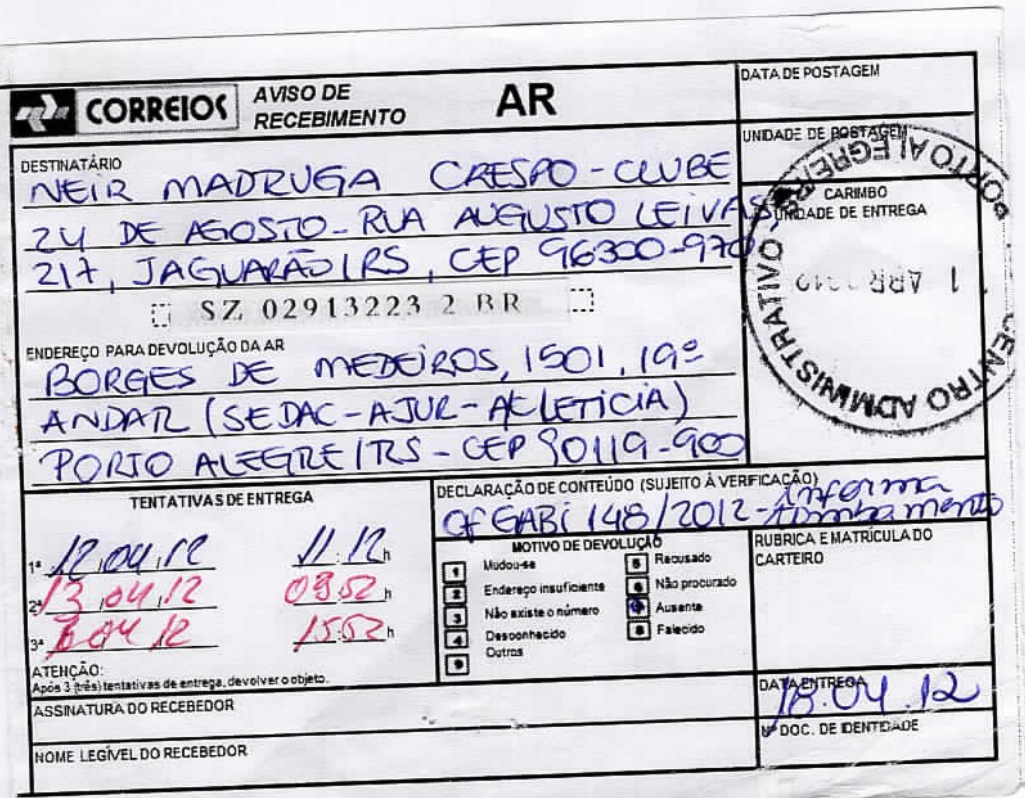 CORREIOS
AVISO DE
RECEBIMENTO
AR
DATA DE POSTAGEM
UNIDADE DE POSTAGEM
DESTINATÁRIO
NEIR MADRUGA CRESPO - CLUBE
24 DE AGOSTO - RUA AUGUSTO LEIVAS
217, JAGUARÃO/RS, CEP 96300-970
SZ 02913223 2 BR
CARIMBO
UNIDADE DE ENTREGA
CENTRO ADMINISTRATIVO
PORTO ALEGRE/RS
ABR
ENDEREÇO PARA DEVOLUÇÃO DA AR
BORGES DE MEDEIROS, 1501, 19º
ANDAR (SEDAC-AJUR-A/C LETICIA)
PORTO ALEGRE/RS - CEP 90119-900
TENTATIVAS DE ENTREGA
1ª 12,04,12 11:12 h
2ª 13,04,12 09:52 h
3ª 04,12 15:52 h
ATENÇÃO:
Após 3 (três) tentativas de entrega, devolver o objeto.
DECLARAÇÃO DE CONTEÚDO (SUJEITO À VERIFICAÇÃO)
Of GABI 148/2012 - informa
tombamento
MOTIVO DE DEVOLUÇÃO
1 Mudou-se
2 Endereço insuficiente
3 Não existe o número
4 Desconhecido
9 Outros
5 Recusado
6 Não procurado
Ausente
8 Falecido
RUBRICA E MATRÍCULA DO
CARTEIRO
ASSINATURA DO RECEBEDOR
DATA ENTREGA
18.04.12
NOME LEGÍVEL DO RECEBEDOR
Nº DOC. DE IDENTIDADE